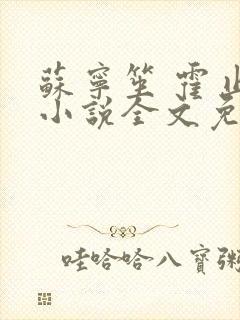 蘇寧笙 霍
小說全文免
哇哈哈八寶粥